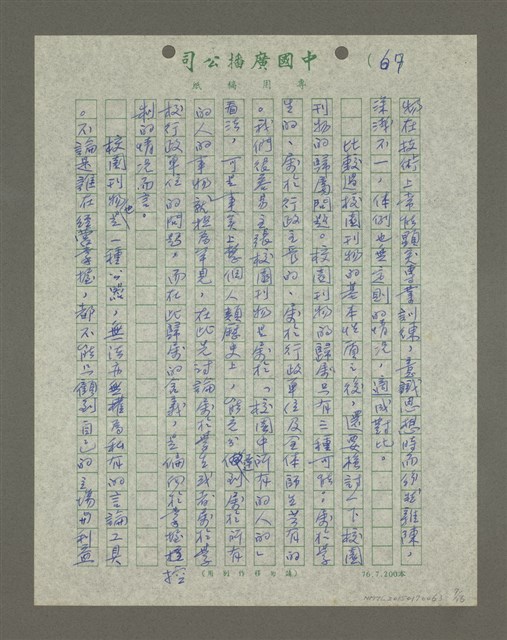 司公播廣國中
紙稿用專
(67
物在技術上常能顯見專業訓練，意識思想時而紛歧雜陳，
深淺不一，体例也無定則的情況，適成對比。
比較過校園刊物的基本性質之後，還要檢討一下校園
刊物的歸屬問題。校園刊物的歸屬只有三種可能，屬於學
生的、屬於行政主管的、屬於行政單位及全体師生共有的
。我們很容易主張校園刊物也屬於「校園中所有的人的」
看法，可是事實上整個人類歷史上，能充分做到屬於所有
的人的事物就極為罕見，在此先討論屬於學生或者屬於學
校行政單位的問題，而在此歸屬的意義，是偏向於掌握控
制的情況而言。
校園刊物也是一種公器，無法亦無權為私有的言論工具
。不論是誰在經營掌握，都不能只顧到自己的立場與利益
(請勿移作別用)
76.7.200本